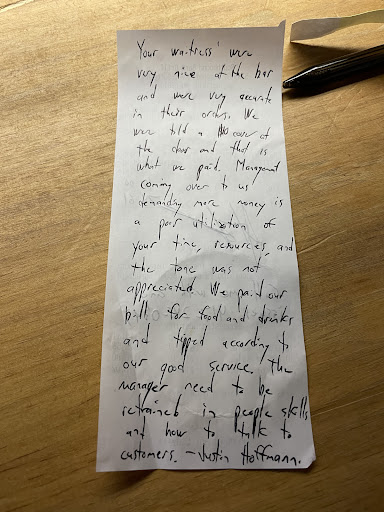 Your waitress' were
very nice at the bar
and were very accurate
in their orders. We
were told a cover at
the door and that is
what we paid. Management
coming over to us
demanding more money is
a poor utilization of
your time, resources, and
the tone was not
appreciated. We paid our
bill for food and drinks
and tipped according to
our good service. The
manager need to be
retrained in people skills
and how to talk to
customers. -Justin Hoffmann.